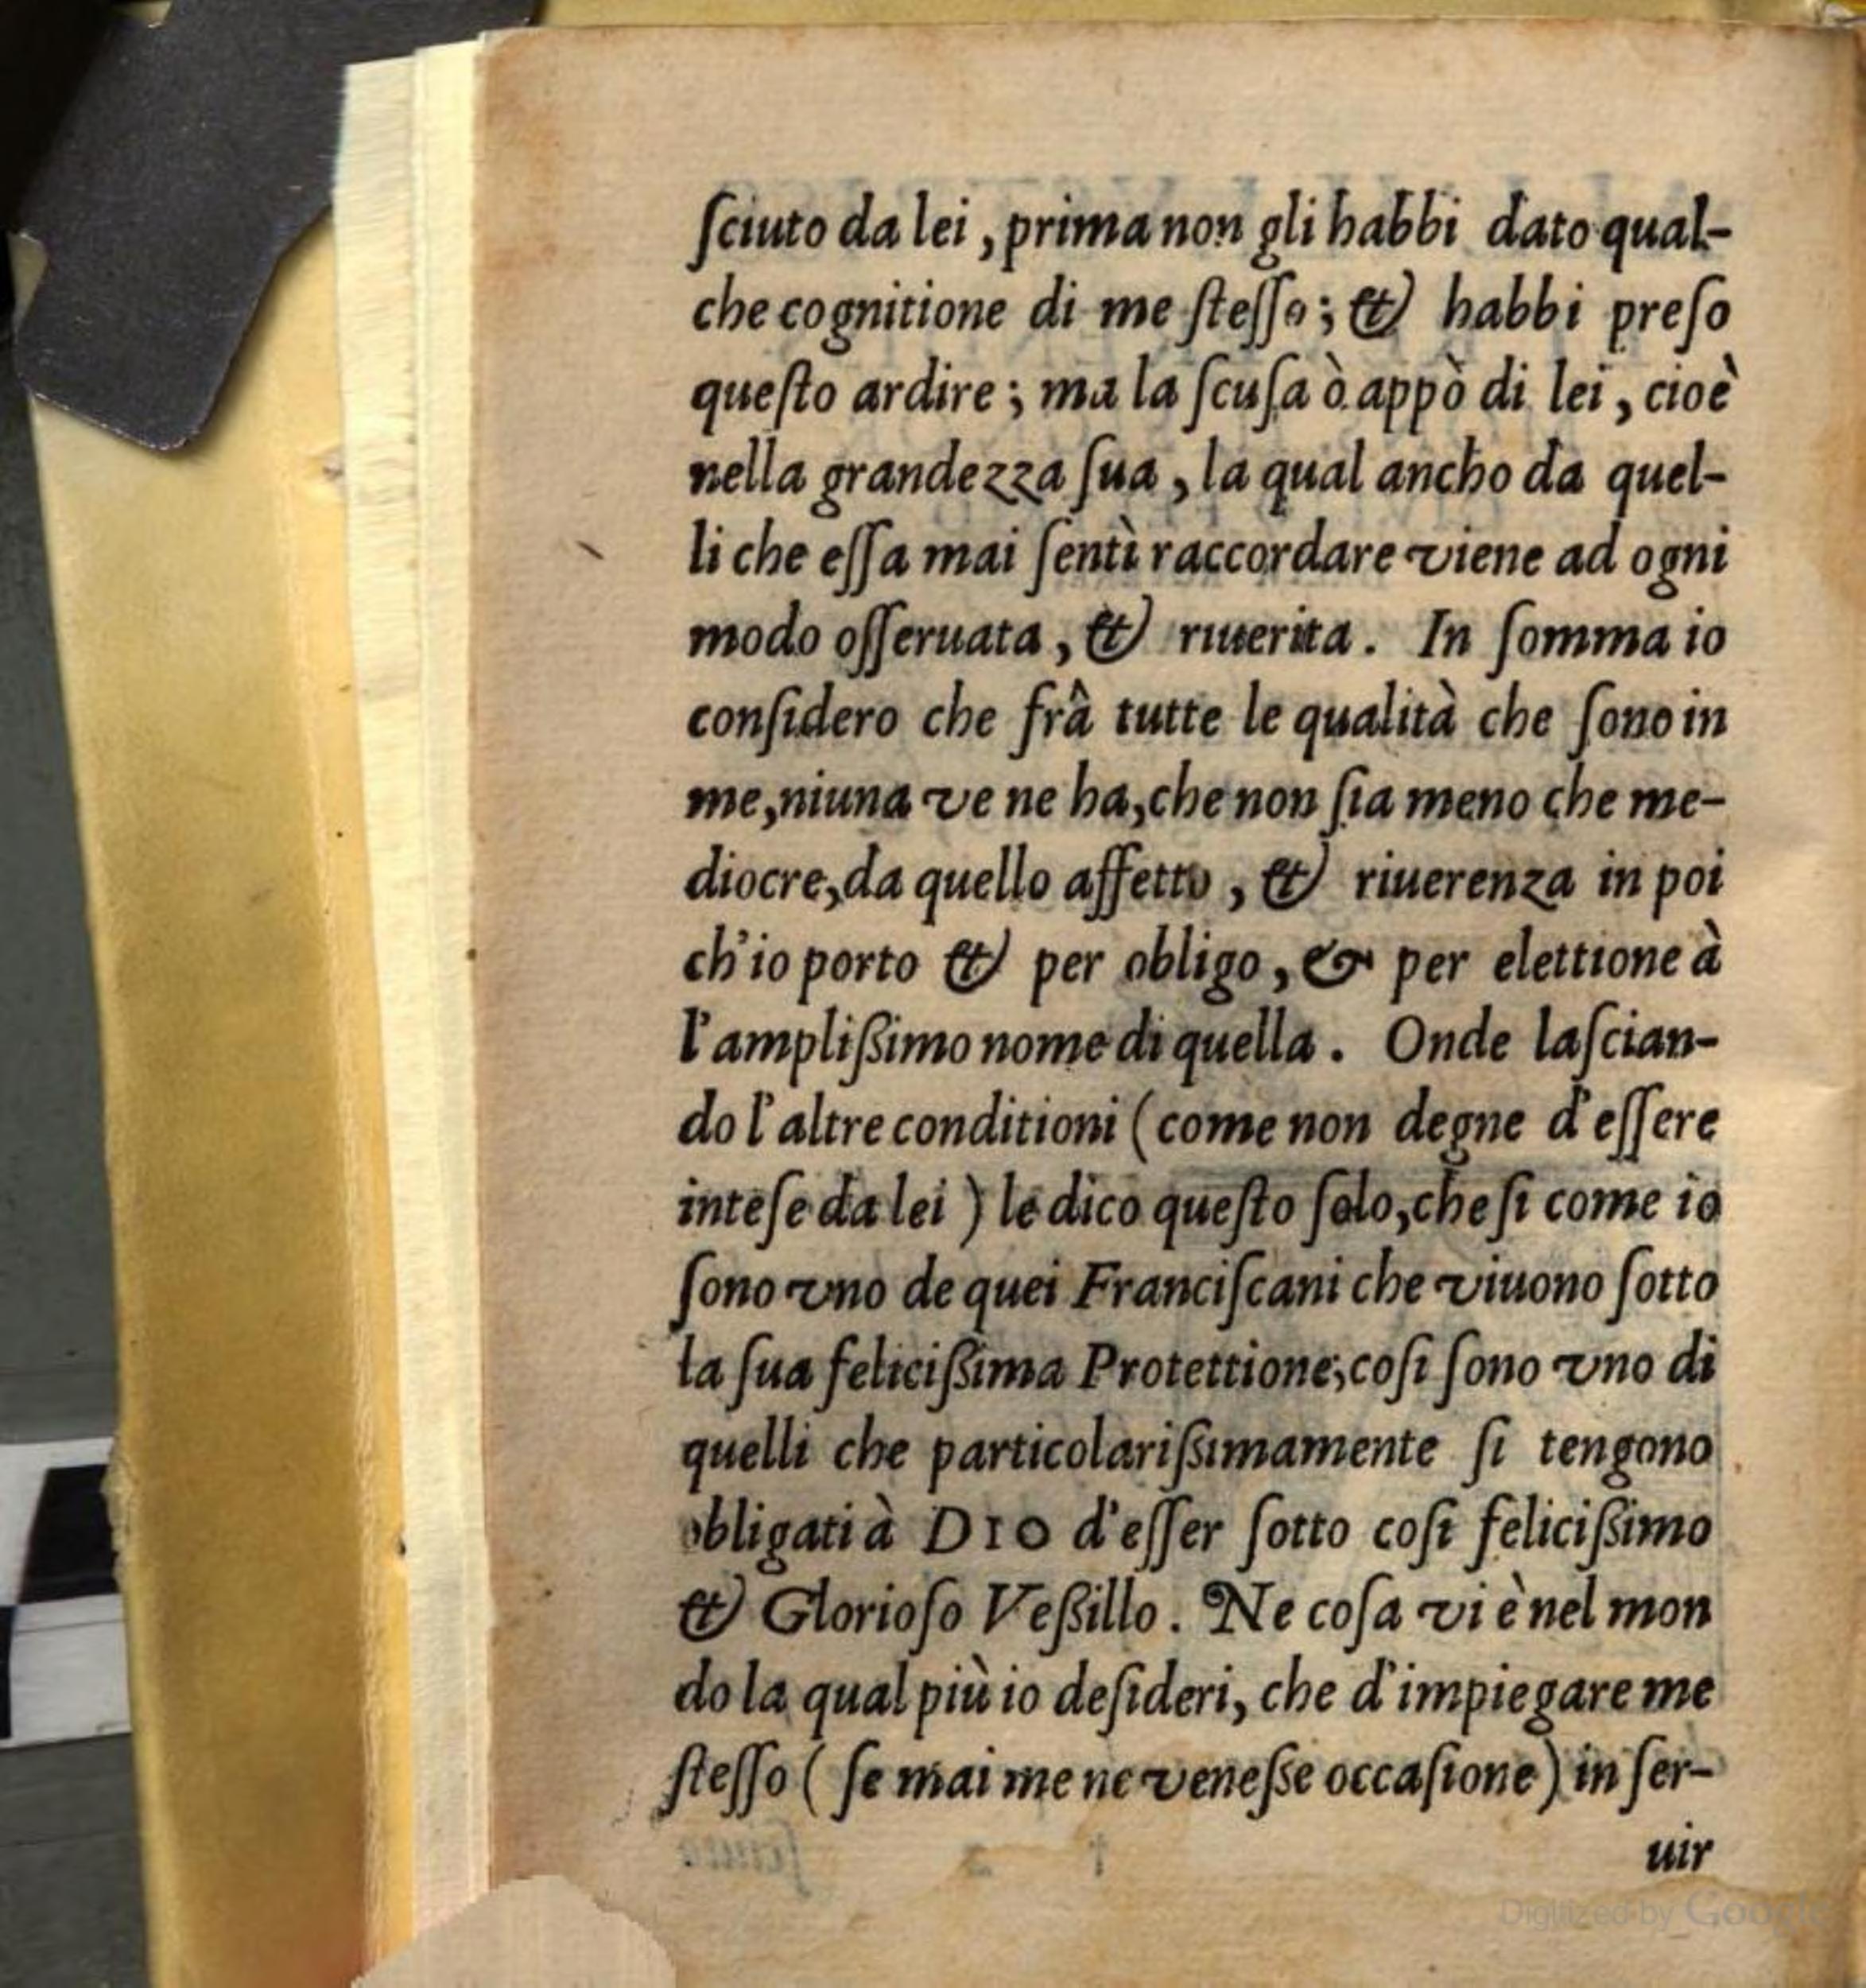 ſciuto da lei, prima non gli habbi dato qual-
che cognitione di me ſteſſo; & habbi preſo
queſto ardire; ma la ſcuſa ò appò di lei, cioè
nella grandezza ſua, la qual ancho da quel-
li che eſſa mai ſentì raccordare viene ad ogni
modo oſſeruata, & riuerita. In ſomma io
conſidero che frâ tutte le qualità che ſono in
me, niuna ve ne ha, che non ſia meno che me-
diocre, da quello affetto, & riuerenza in poi
ch'io porto & per obligo, & per elettione à
l'ampliſsimo nome di quella. Onde laſcian-
do l'altre conditioni (come non degne d'eſſere
inteſe da lei) le dico queſto ſolo, che ſi come io
ſono vno de quei Franciſcani che viuono ſotto
la ſua feliciſsima Protettione; coſi ſono vno di
quelli che particolariſsimamente ſi tengono
obligati à DIO d'eſſer ſotto coſi feliciſsimo
& Glorioſo Veſsillo. Ne coſa vi è nel mon
do la qual più io deſideri, che d'impiegare me
ſteſſo (ſe mai me ne veneſse occaſione) in ſer-
uir
Digitized by Google